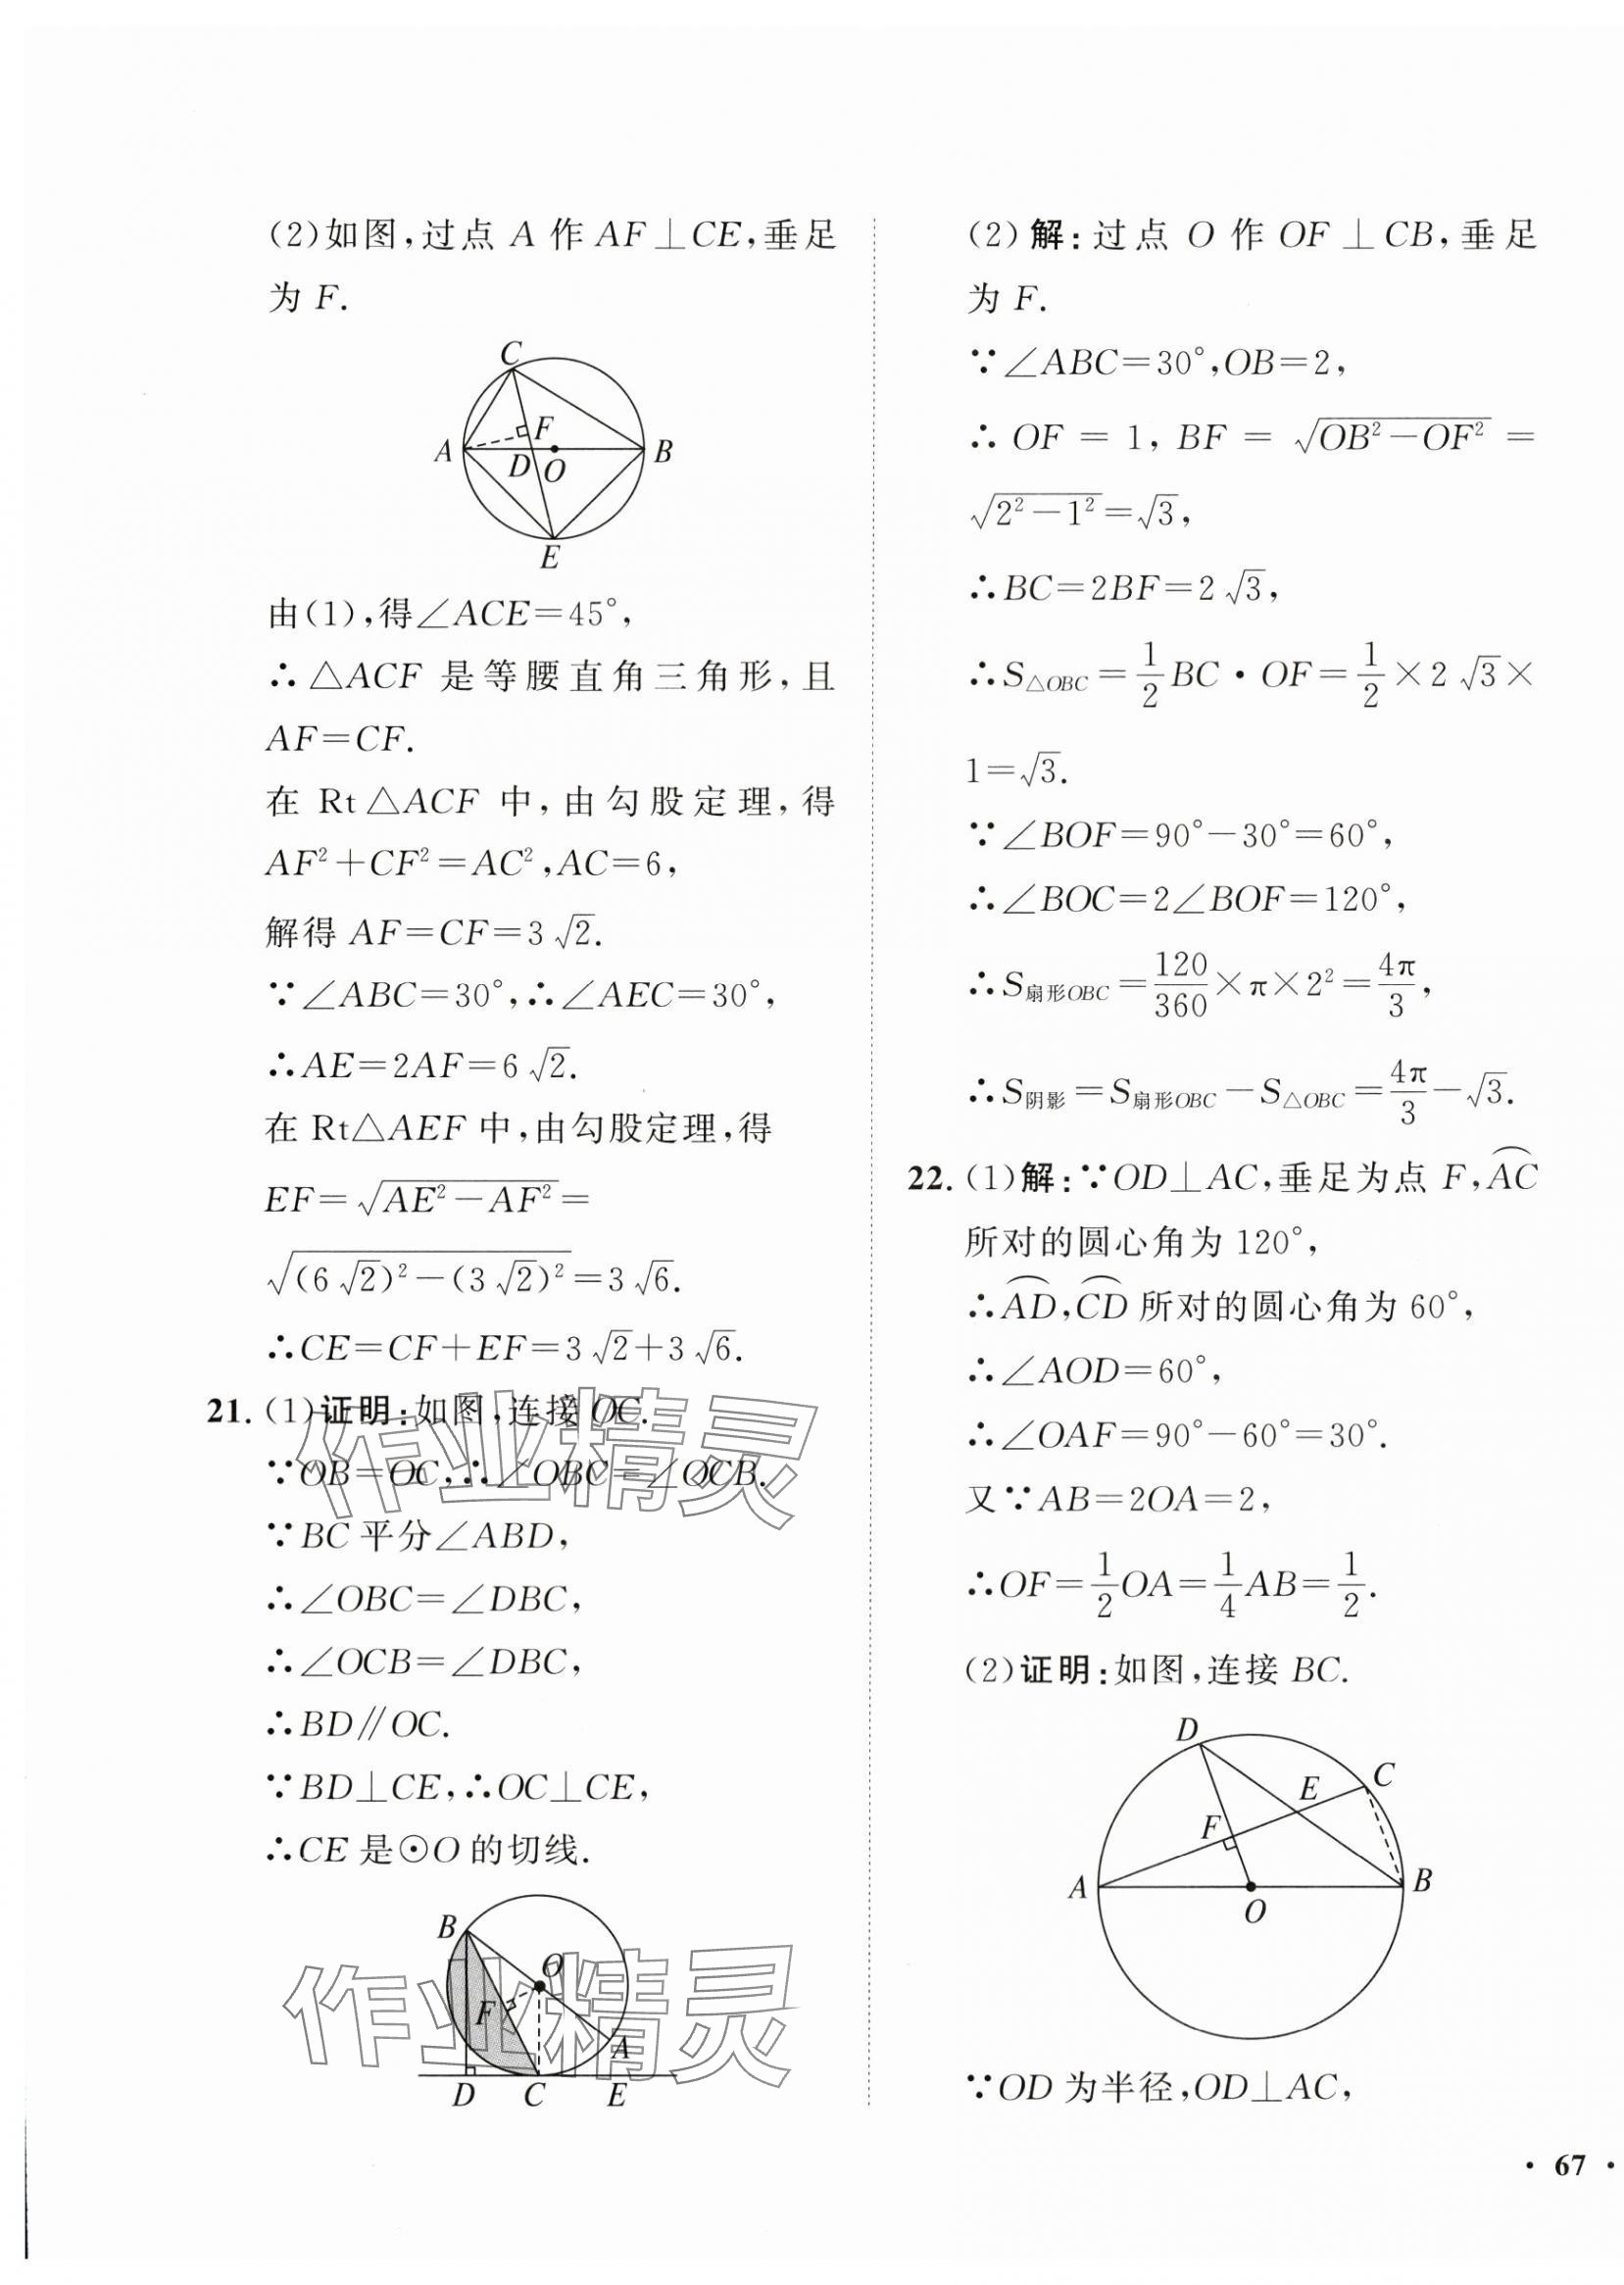 (2)如图,过点 A 作 AF⊥CE,垂足
为 F.
C
F
A
D
O
B
E
由(1),得∠ACE=45°,
∴△ACF 是等腰直角三角形,且
AF=CF.
在 Rt△ACF 中,由勾股定理,得
AF²+CF²=AC²,AC=6,
解得 AF=CF=3√2.
∵∠ABC=30°,∴∠AEC=30°,
∴AE=2AF=6√2.
在 Rt△AEF 中,由勾股定理,得
EF=√(AE²-AF²)=
√((6√2)²-(3√2)²)=3√6.
∴CE=CF+EF=3√2+3√6.
21. (1)证明:如图,连接 OC.
∵OB=OC,∴∠OBC=∠OCB.
作业精灵
∵BC 平分∠ABD,
∴∠OBC=∠DBC,
∴∠OCB=∠DBC,
∴BD∥OC.
∵BD⊥CE,∴OC⊥CE,
∴CE 是⊙O 的切线.
B
O
F
A
D C E
作业精灵
(2)解:过点 O 作 OF⊥CB,垂足
为 F.
∵∠ABC=30°,OB=2,
∴OF=1,BF=√(OB²-OF²)=
√(2²-1²)=√3,
∴BC=2BF=2√3,
∴S△OBC=1/2BC·OF=1/2×2√3×
1=√3.
∵∠BOF=90°-30°=60°,
∴∠BOC=2∠BOF=120°,
∴S扇形OBC=120/360×π×2²=4π/3,
∴S阴影=S扇形OBC-S△OBC=4π/3-√3.
22. (1)解:∵OD⊥AC,垂足为点 F,⌒AC
所对的圆心角为 120°,
∴⌒AD,⌒CD所对的圆心角为 60°,
∴∠AOD=60°,
∴∠OAF=90°-60°=30°.
又∵AB=2OA=2,
∴OF=1/2OA=1/4AB=1/2.
(2)证明:如图,连接 BC.
D
C
E
F
A
O
B
∵OD 为半径,OD⊥AC,
·67·